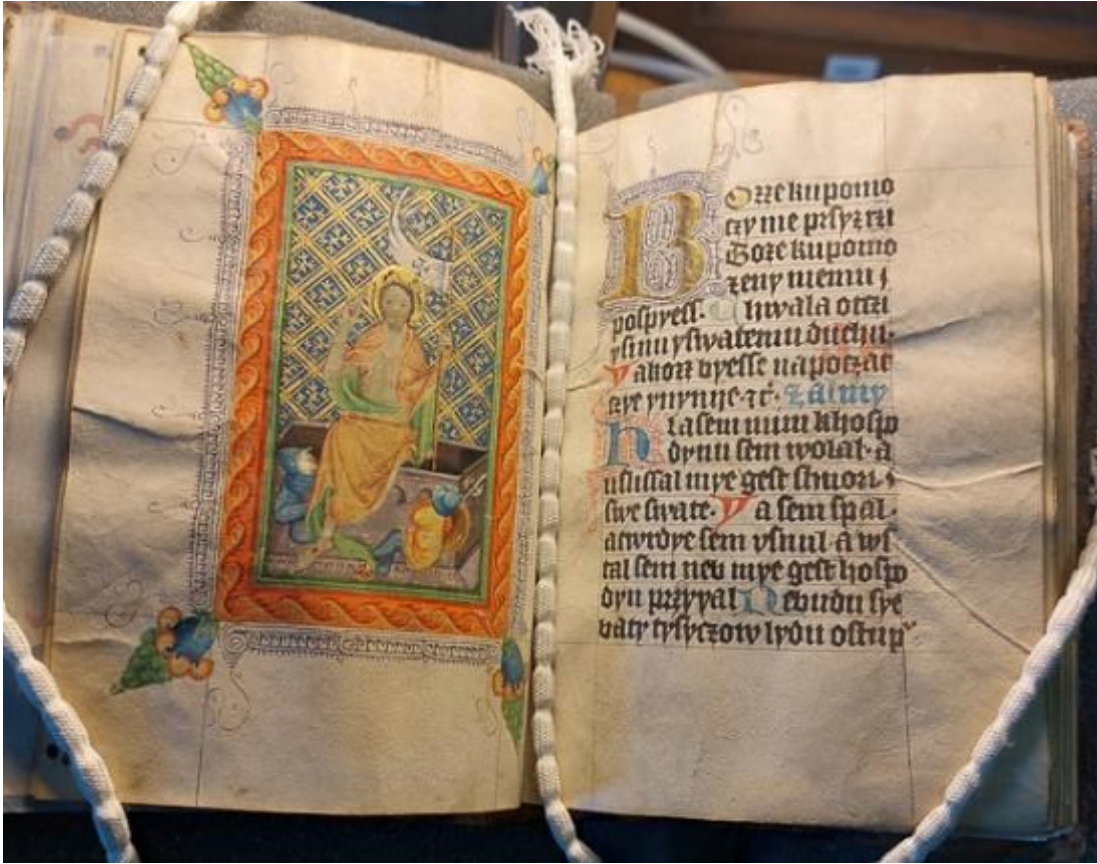 Bozie kupomo
czy me przyzrzi
Boze kupomo
zeny memu s
pospyess. Chwala otczi
ysinu yswatemu duchu.
yakoz byesse napoczat
czye ynynye. zalmy
hlasem mim khospo
dynu sem wolal. a
uslissal mye gest shuori s
swe swate. ya sem spal.
atwrdye sem vsnul. A ws
tal sem neb mye gest hospo
dyn przyyal Nebudu sye
baty tysyczow lydu ostup